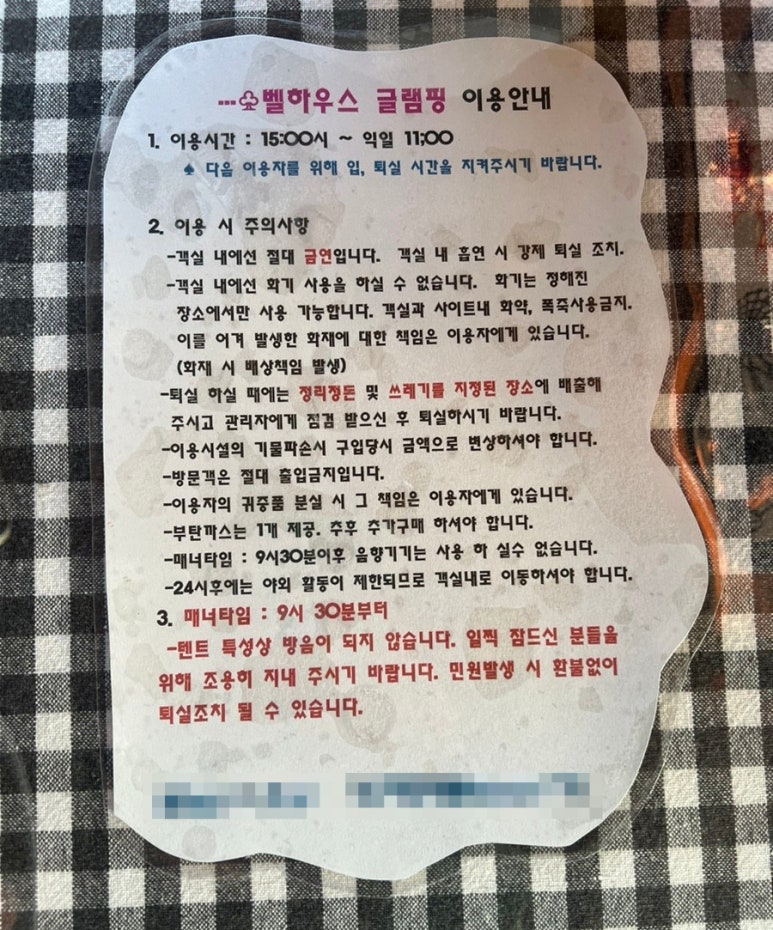 ···♧벨하우스 글램핑 이용안내
1. 이용시간 : 15:00시 ~ 익일 11;00
♠ 다음 이용자를 위해 입, 퇴실 시간을 지켜주시기 바랍니다.
2. 이용 시 주의사항
-객실 내에선 절대 금연입니다. 객실 내 흡연 시 강제 퇴실 조치.
-객실 내에선 화기 사용을 하실 수 없습니다. 화기는 정해진
장소에서만 사용 가능합니다. 객실과 사이트내 화약, 폭죽사용금지.
이를 어겨 발생한 화재에 대한 책임은 이용자에게 있습니다.
(화재 시 배상책임 발생)
-퇴실 하실 때에는 정리정돈 및 쓰레기를 지정된 장소에 배출해
주시고 관리자에게 점검 받으신 후 퇴실하시기 바랍니다.
-이용시설의 기물파손시 구입당시 금액으로 변상하셔야 합니다.
-방문객은 절대 출입금지입니다.
-이용자의 귀중품 분실 시 그 책임은 이용자에게 있습니다.
-부탄까스는 1개 제공. 추후 추가구매 하셔야 합니다.
-매너타임 : 9시30분이후 음향기기는 사용 하 실수 없습니다.
-24시후에는 야외 활동이 제한되므로 객실내로 이동하셔야 합니다.
3. 매너타임 : 9시 30분부터
-텐트 특성상 방음이 되지 않습니다. 일찍 잠드신 분들을
위해 조용히 지내 주시기 바랍니다. 민원발생 시 환불없이
퇴실조치 될 수 있습니다.